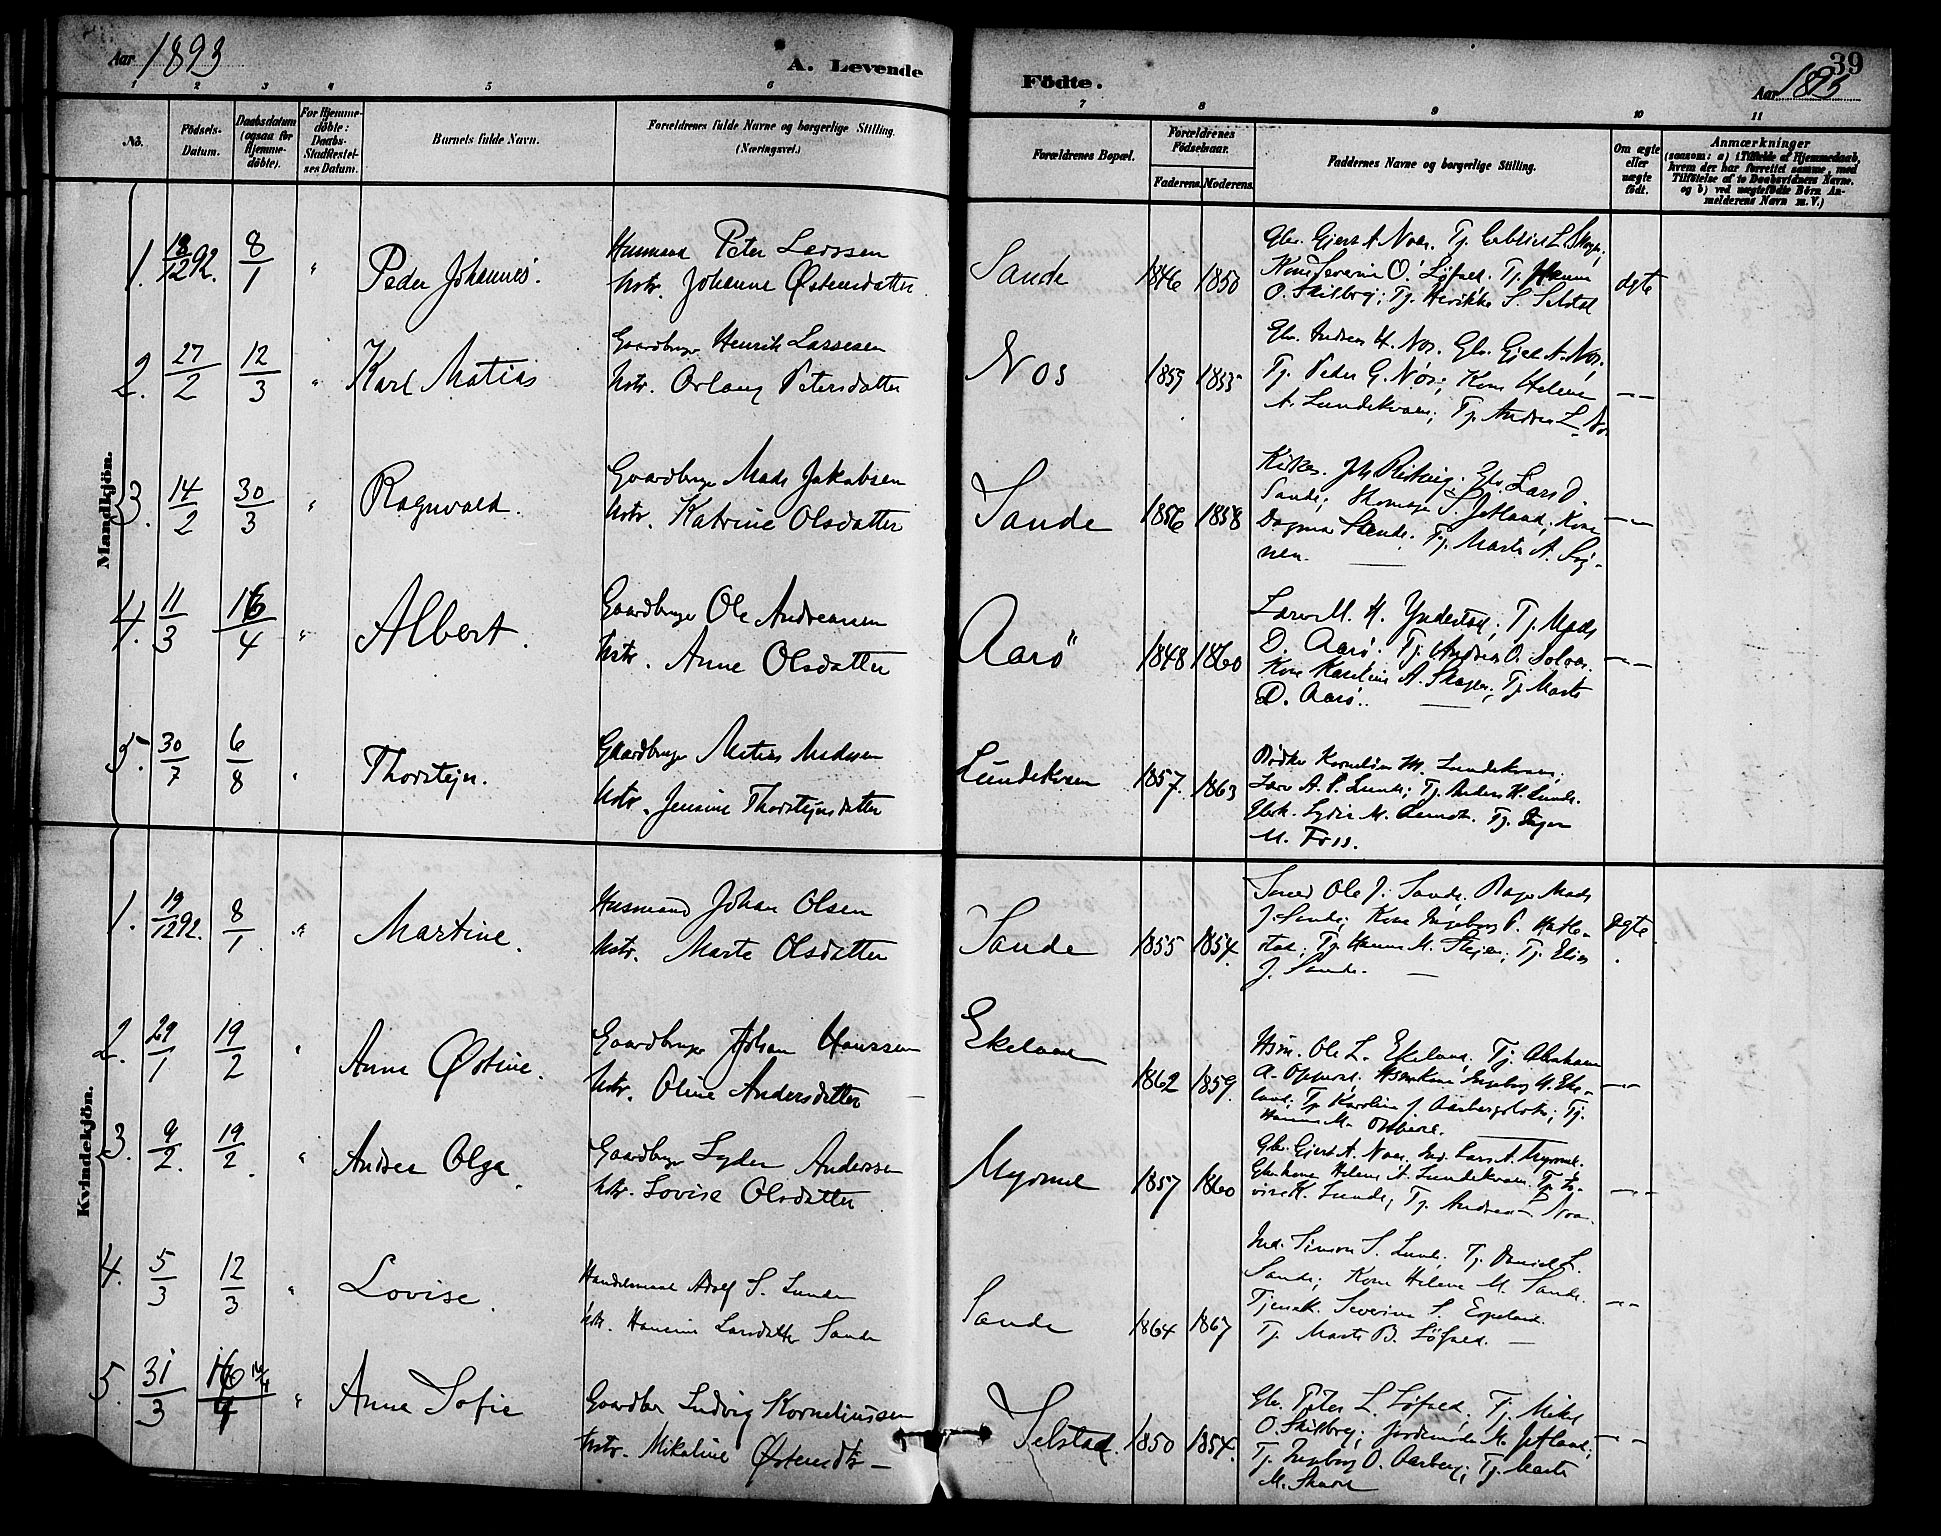 Aar 1893
A. Levende
Födte.
39
Aar 1893
1 2 3 4 5 6 7 8 9 10 11
No.
Födsels-
Datum.
Daabsdatum
(ogsaa for
Hjemme-
döbte).
For Hjemme-
döbte:
Daabs-
Stadfæstel-
ses Datum.
Barnets fulde Navn.
Forældrenes fulde Navne og borgerlige Stilling.
(Næringsvei.)
Forældrenes Bopæl.
Forældrenes
Födselsaar.
Faderens. Moderens.
Faddernes Navne og borgerlige Stilling.
Om ægte
eller
uægte
födt.
Anmærkninger
(saasom: a) i Tilfælde af Hjemmedaab,
hvem der har forrettet samme, med
Tilföielse af to Daabsvidners Navne,
og b) ved uægtefödte Börn An-
melderens Navn m. V.)
Mandkjön.
1. 18/12 92. 8/1 " Peder Johannes.
Husmand Peter Larssen
Hstr. Johanne Østensdatter.
Sande 1846 1850
Gbr. Gjert A. Noss. Tj.
Kone Severine O. Løfald. Tj.
O. Skilbrej; Tj. Henrikke S. Selstad
ægte
2. 27/2 12/3 " Karl Matias
Gaardbruger Henrik Larsen
Hstr. Orlaug Petersdatter
Nos 1859 1855
Gbr. Andreas H. Nos. Gbr. Gjert A. Nos.
Tj. Peder G. Nos; Kone Helene
A. Lundekvam; Tj. Andrea L. Nos
— —
3. 14/2 30/3 " Ragnvald.
Gaardbruger Mads Jakobsen
Hstr. Katrine Olsdatter
Sande 1856 1858
Gbr. Lars D.
Sande; S. Jetland; Kone
Dagmar Sande. Tj. Marte A. Søg-
nen.
— —
4. 11/3 16/4 " Albert.
Gaardbruger Ole Andreassen
Hstr. Anne Olsdatter
Aarö 1848 1860
M. H. Yndestad; Tj. Mads
D. Aarø. Tj. Andreas O. Solvær.
Kone Karoline A. Skagen; Tj. Marte
D. Aarø.
— —
5. 30/7 6/8 " Thorstejn.
Gaardbruger Matias Madssen
Hstr. Jensine Thorstejnsdatter
Lundekvam 1857. 1863
Bødker Kornelius M. Lundekvam;
Lars A. S. Lunde; Tj. Anders K. Lunde.
Lydia M. Tj. Inger
M. Foss.
Kvindekjön.
1. 19/12 92. 8/1. " Martine.
Husmand Johan Olsen
Hstr. Marte Olsdatter
Sande 1855 1854.
Smed Ole J. Sande, Mads
J. Sande; Kone Ingeborg P. Hatle-
stad; Tj. Hanna M. Stejen; Tj. Elias
J. Sande. —
Ægte.
2. 29/1 19/2 " Anna Østine.
Gaardbruger Johan Hanssen
Hstr. Oline Andersdatter
Ekeland 1862 1859.
Hsm. Ole L. Ekeland, Tj. Abraham
A. Oppedal. Hsmkone Ingeborg H. Eke-
land; Tj. Karoline J. Aarbergsholt; Tj.
Hanna M. Oppedal.
— —
3. 9/2. 19/2. " Andrea Olga.
Gaardbruger Lyder Anderssen
Hstr. Lovise Olsdatter
Myrmel 1857 1860
Gbr. Gjert A. Noss. Ind. Lars A. Myrmel.
Gbrkone Helene A. Lundekvam. Tj. Lo-
vise K. Lunde; Tj. Andrea L. Noss.
— —
4. 5/3 12/3 " Lovise.
Handelsmand Adolf S. Lunde
Hstr. Hansine Larsdatter Sande
Sande 1864 1867
Ind. Simon S. Lunde; Tj. Daniel L.
Sande; Kone Helene M. Sande.
Tjenek. Severine S. Espeland.
Tj. Marte B. Løfald. —
— —
5. 31/3 16/4 16/4 " Anna Sofie
Gaardbr Ludvig Korneliussen
Hstr. Mikaline Østensdtr —
Selstad. 1850 1854.
Gbr. Peter L. Løfald; Tj. Mikal
O. Skilbrej; Jordmoder M. Jetland;
Tj. Ingeborg O. Aarberg; Tj. Marte
M. Skaar
— —